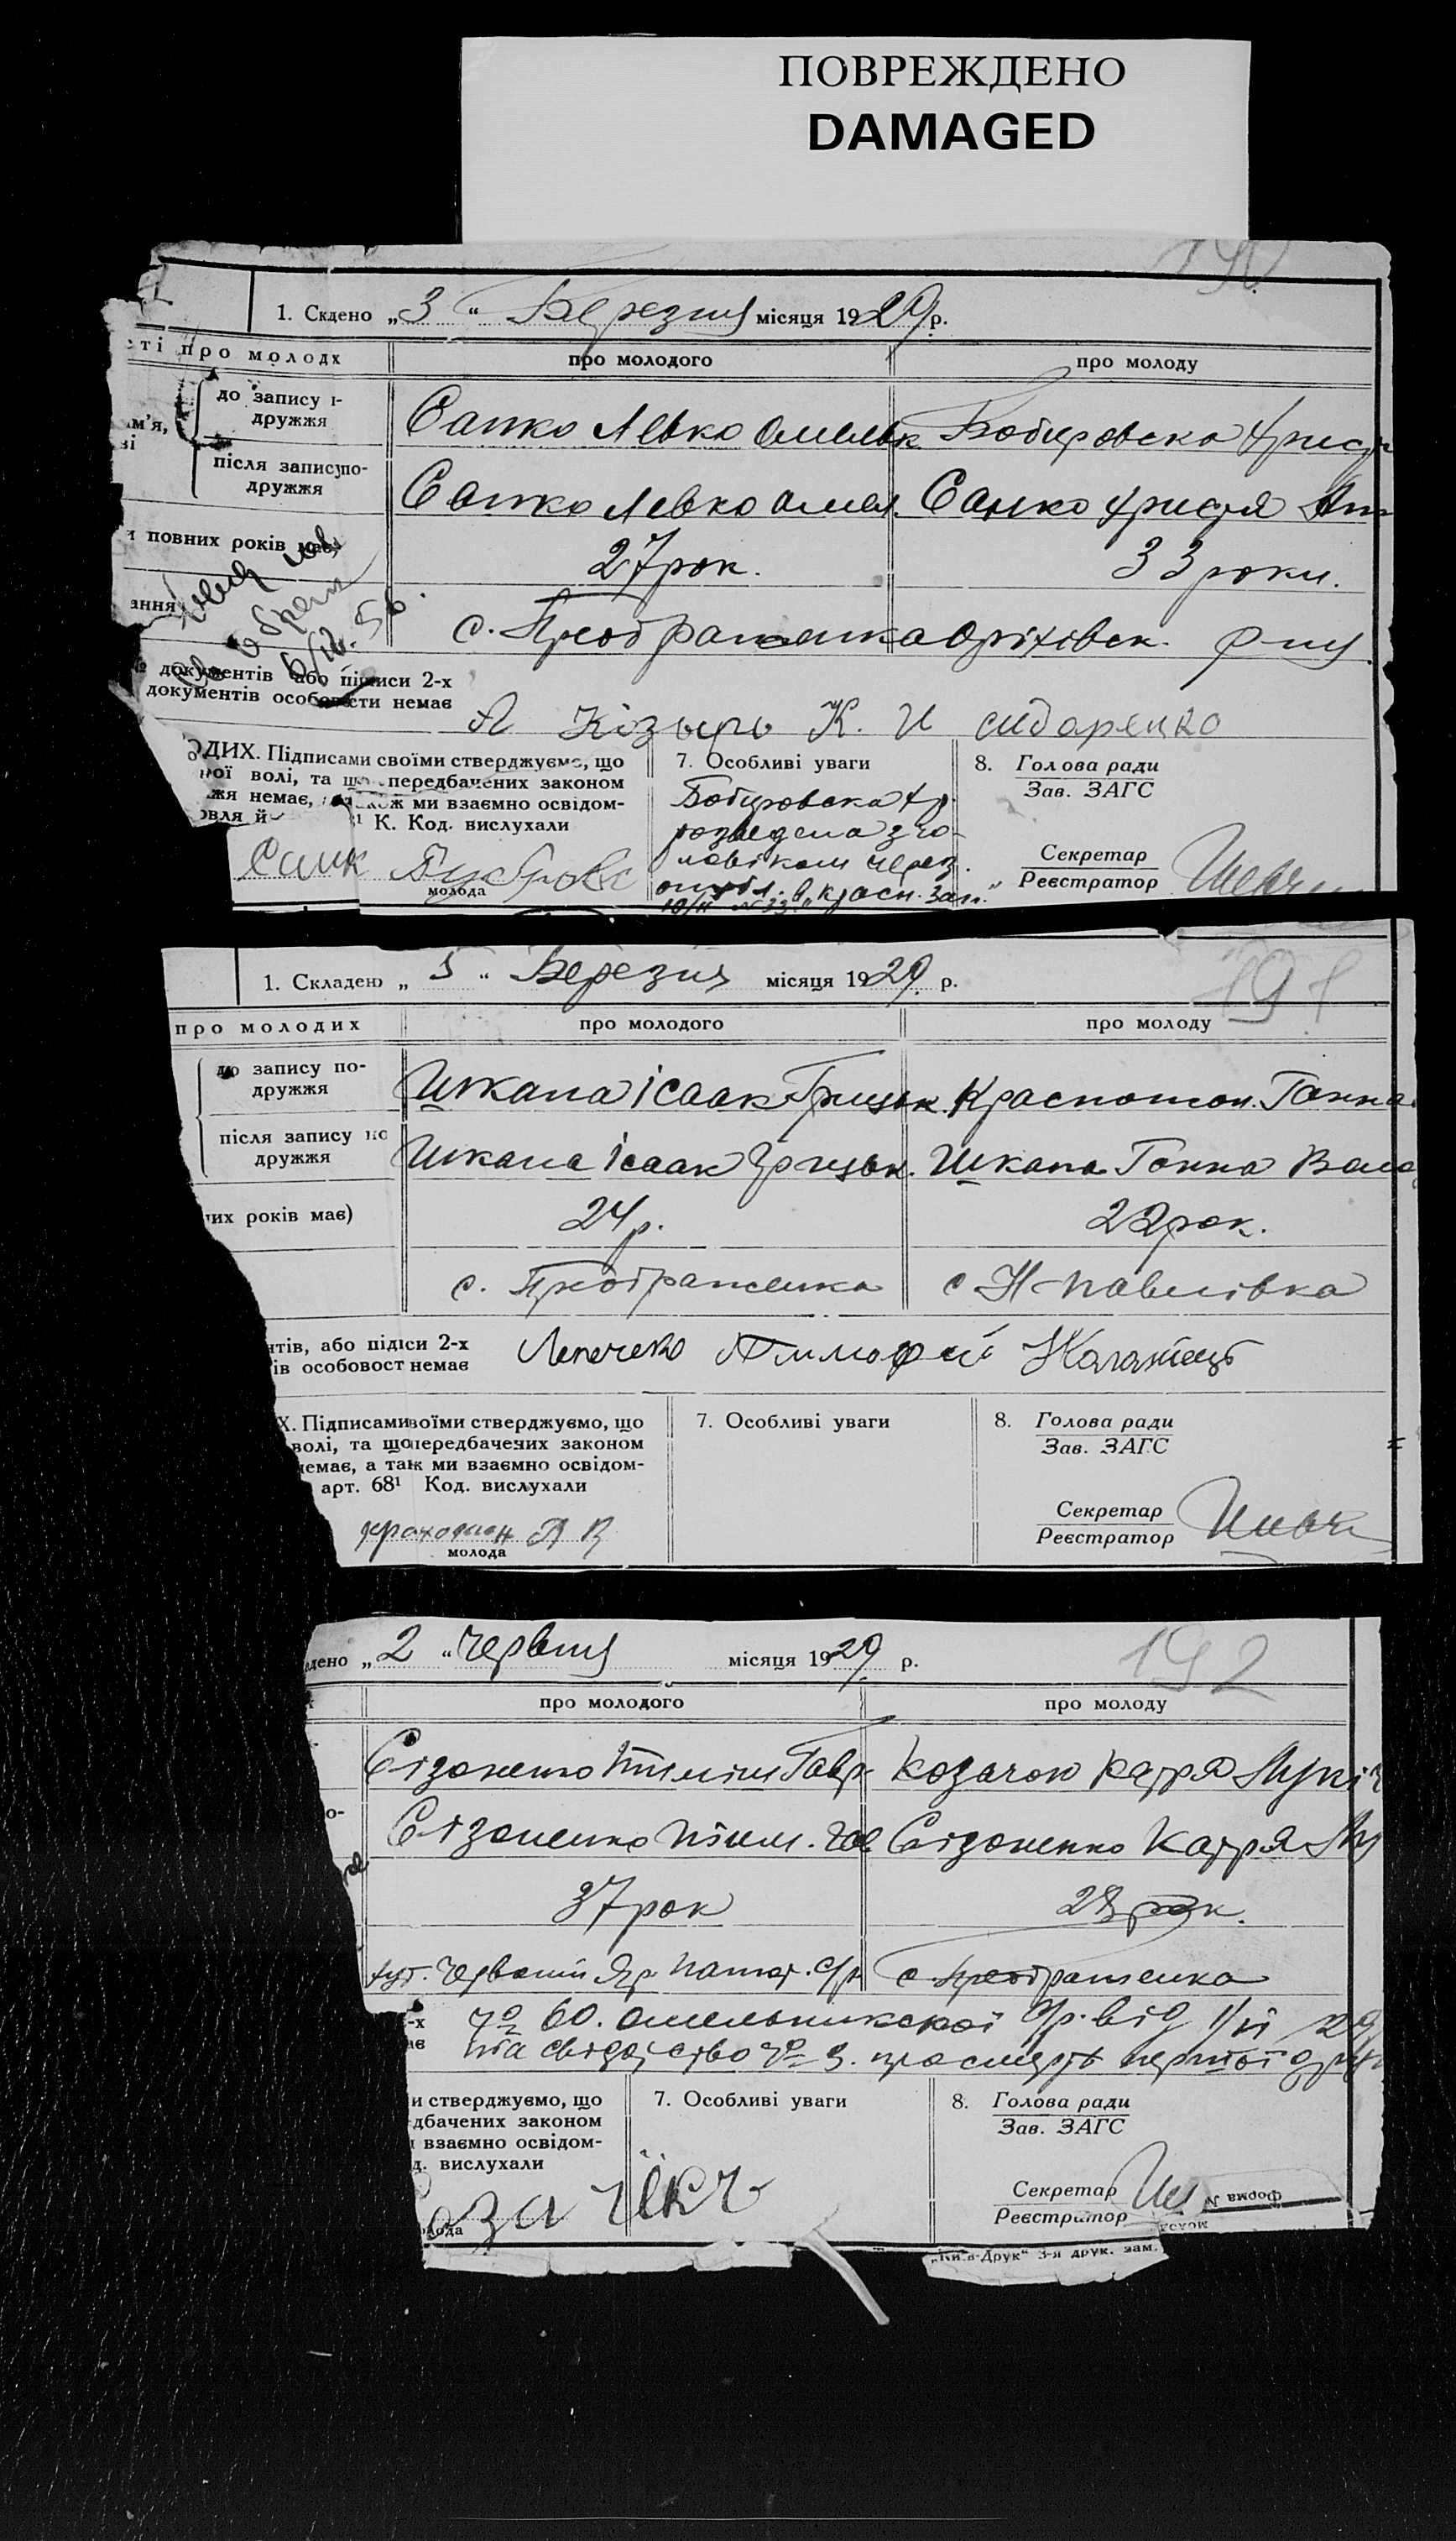 ПОВРЕЖДЕНО
DAMAGED
190
1. Скдено „3“ Березня місяця 1929 р.
ті про молодх
про молодого
про молоду
до запису і-
дружжя
ім’я,
ві
Сапко Левко Омельк
Бобировска Христя
після запису по-
дружжя
Сапко Левко Омел.
Сапко Христя
и повних років має
27 рок.
33 роки.
ання
с. Преображенка Оріхівск.
6/III. 56.
№ документів або підписи 2-х
документів особовости немає
Козырь К. И сидаренко
ОДИХ. Підписами своїми стверджуємо, що
ної волі, та що передбачених законом
жя немає, також ми взаємно освідом-
овля й К. Код. вислухали
молода
7. Особливі уваги
Бобировска Хр.
розведена з чо-
ловіком через
опубл. в „Красн. Зап.“
10/II № 33.
8. Голова ради
Зав. ЗАГС
Секретар
Реєстратор
191
1. Складено „5“ Березня місяця 1929 р.
про молодих
про молодого
про молоду
до запису по-
дружжя
Шкапа Ісаак Грицьк.
Краснотон. Ганна
після запису по
дружжя
Шкапа Ісаак Грицьк.
Шкапа Ганна
них років має)
24 р.
22 рок.
с. Преображенка
с Н-Павлівка
нтів, або підпси 2-х
ів особовост немає
Лепетеко Тимофей
Х. Підписами воїми стверджуємо, що
волі, та що передбачених законом
немає, а так ж ми взаємно освідом-
арт. 68¹ Код. вислухали
молода
7. Особливі уваги
8. Голова ради
Зав. ЗАГС
Секретар
Реєстратор
192
дено „2“ Червня місяця 1929 р.
про молодого
про молоду
Сізоненко Пилип Гавр
Козачок Катря Лукіч
о-
Сізоненко
Сізоненко Катря Лу
37 рок
28 рок.
хут. Червоний Яр.
с. Преображенка
-х
№ 60. Омельникскої с/р. від 1/VI 29
ає
та свідоцтво № 3. про смерть першої друж
и стверджуємо, що
дбачених законом
взаємно освідом-
д. вислухали
лода
7. Особливі уваги
8. Голова ради
Зав. ЗАГС
Секретар
Реєстратор
Форма №
„Київ-Друк“ 3-я друк. зам.